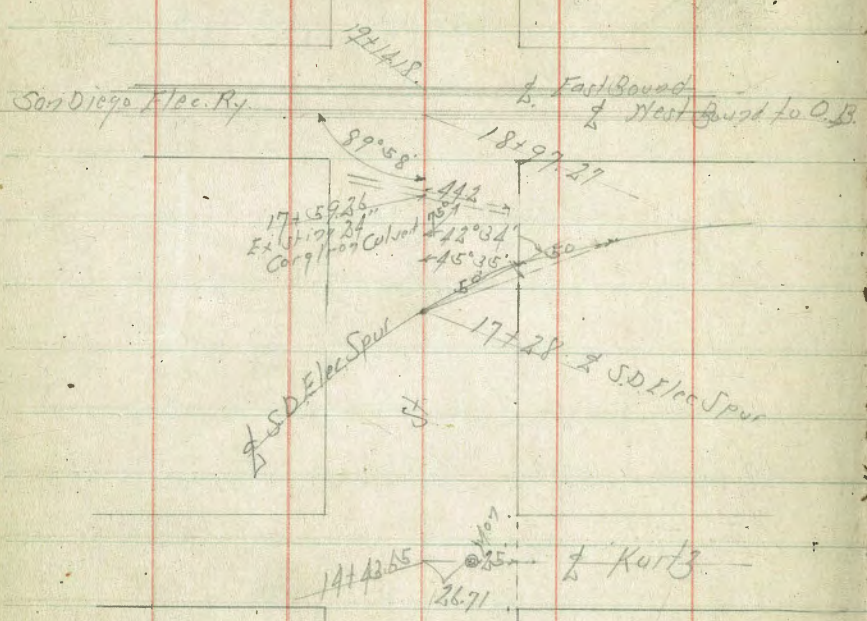 19+14.18.
San Diego Elec. Ry.
℄ East Bound
℄ West Bound to O.B.
89°58'
18+97.27
442
17+59.26
Existing 24"
Corg Iron Culvert
42°34'
45°35'
50
50
17+28 ℄ S.D. Elec Spur
℄ S.D. Elec Spur
14+43.65
25
26.71
℄ Kurtz